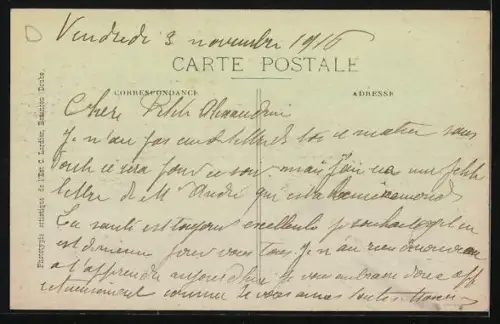 Vendredi 3 novembre 1916
CARTE POSTALE
CORRESPONDANCE
ADRESSE
Phototypie artistique de l'Est C. Lardier, Besançon Doubs.
Chère Petite Alexandrine
Je n'ai pas eu de lettre de toi ce matin sans
doute ce sera pour ce soir. mais j'ai eu une petite
lettre de Mr André qui est
La santé est toujours excellente je souhaite qu'il en
est de même pour vous tous. Je n'ai rien de nouveau
a t'apprendre aujourd'hui je vous embrasse donc aff
ectueusement comme je vous aime toutes